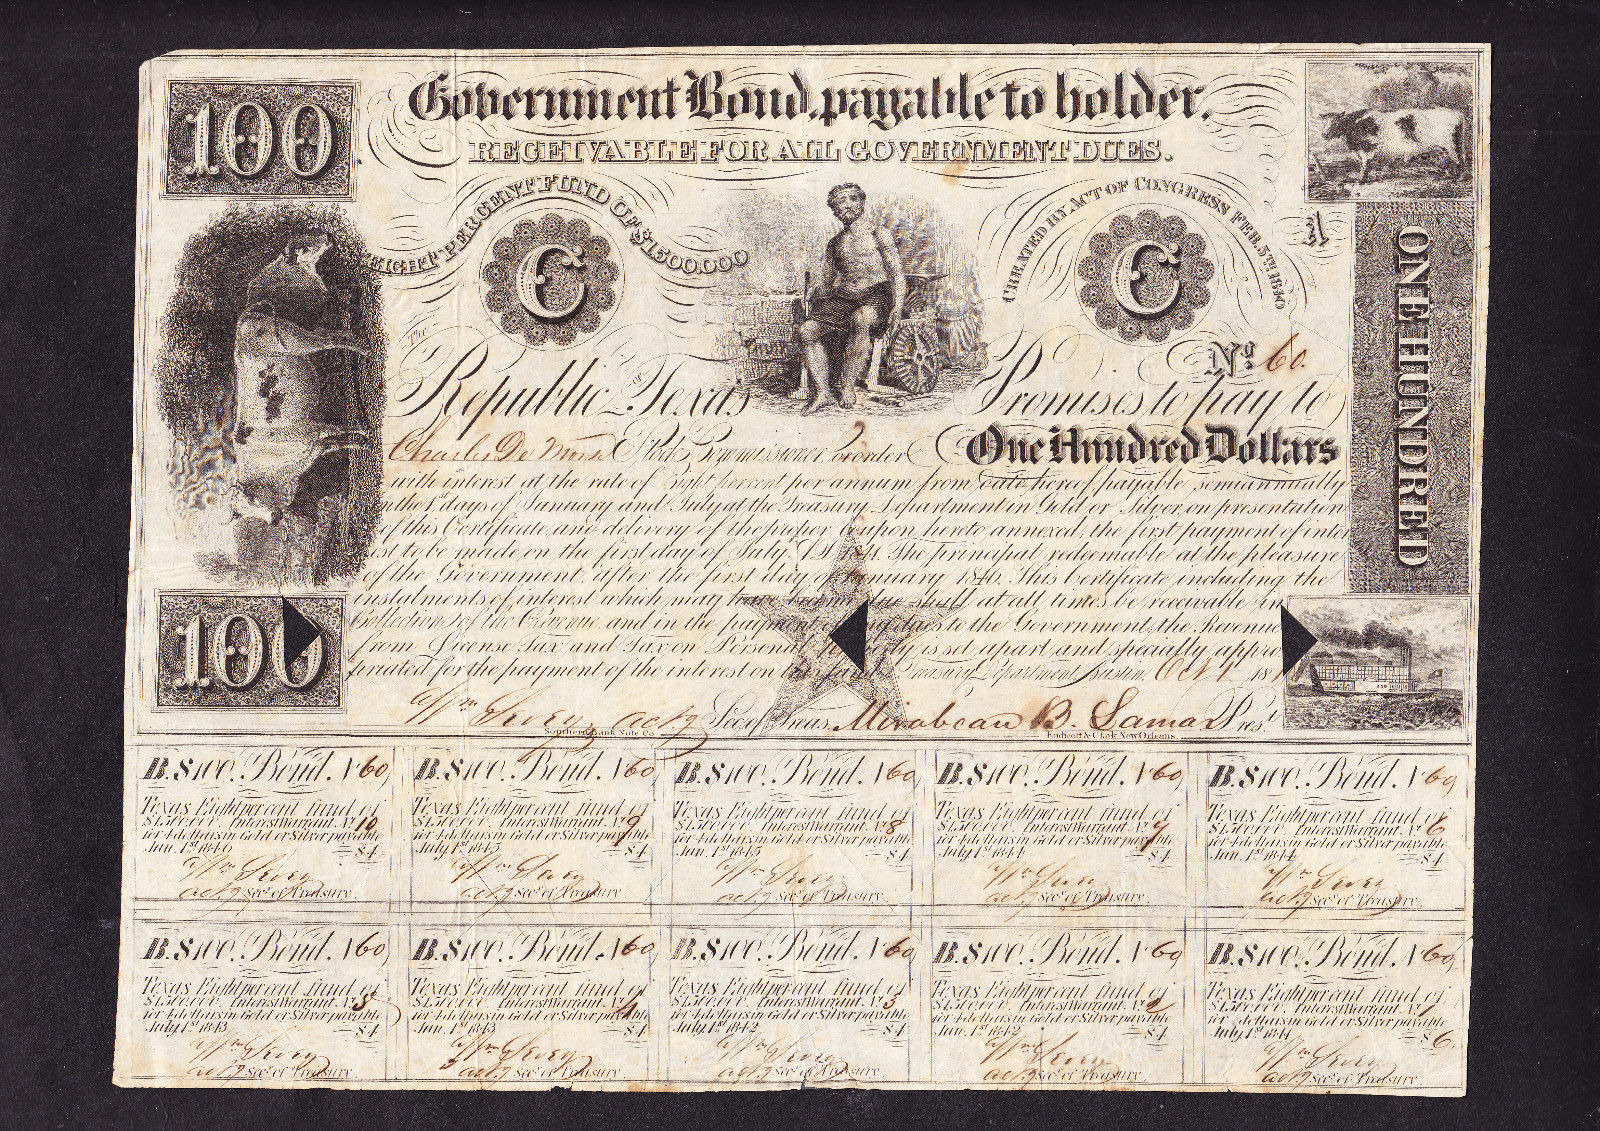 100
Government Bond, payable to holder,
RECEIVABLE FOR ALL GOVERNMENT DUES.
EIGHT PER CENT FUND OF $1,500,000
C
C
CREATED BY ACT OF CONGRESS FEB. 5TH 1840
A
ONE HUNDRED
No. 60.
The Republic of Texas Promises to pay to
Charles De Morse Stock Commissioner, or order One Hundred Dollars
with interest at the rate of Eight per cent per annum from date hereof, payable semiannually
on the 1st days of January and July at the Treasury Department in Gold or Silver, on presentation
of this Certificate and delivery of the proper Coupon hereto annexed, the first payment of inter
est to be made on the first day of July, A.D. 1841. The principal redeemable at the pleasure
of the Government after the first day of January 1846. This Certificate including the
instalments of interest which may have become due shall at all times be receivable in
Collection of the Revenue and in the payment of dues to the Government, the Revenue
from License Tax and Tax on Personal property is set apart and specially appro
priated for the payment of the interest on Treasury Department, Austin, Oct 1 18
100
actg Secy of Treas. Mirabeau B. Lamar Prest.
Southern Bank Note Co. Endicott & Clark New Orleans.
B. $100. Bond. No 60, B. $100. Bond. No 60, B. $100. Bond. No 60, B. $100. Bond. No 60, B. $100. Bond. No 60,
Texas Eight per cent fund of Texas Eight per cent fund of Texas Eight per cent fund of Texas Eight per cent fund of Texas Eight per cent fund of
$1,500,000. Interest Warrant No 10 $1,500,000. Interest Warrant No 9 $1,500,000. Interest Warrant No 8 $1,500,000. Interest Warrant No 7 $1,500,000. Interest Warrant No 6
for 4 dollars in Gold or Silver payable for 4 dollars in Gold or Silver payable for 4 dollars in Gold or Silver payable for 4 dollars in Gold or Silver payable for 4 dollars in Gold or Silver payable
Jan. 1st 1846 $4 July 1st 1845 $4 Jan. 1st 1845 $4 July 1st 1844 $4 Jan. 1st 1844 $4
actg Secy of Treasury. actg Secy of Treasury. actg Secy of Treasury. actg Secy of Treasury. actg Secy of Treasury.
B. $100. Bond. No 60, B. $100. Bond. No 60, B. $100. Bond. No 60, B. $100. Bond. No 60, B. $100. Bond. No 60,
Texas Eight per cent fund of Texas Eight per cent fund of Texas Eight per cent fund of Texas Eight per cent fund of Texas Eight per cent fund of
$1,500,000. Interest Warrant No 5 $1,500,000. Interest Warrant No 4 $1,500,000. Interest Warrant No 3 $1,500,000. Interest Warrant No 2 $1,500,000. Interest Warrant No 1
for 4 dollars in Gold or Silver payable for 4 dollars in Gold or Silver payable for 4 dollars in Gold or Silver payable for 4 dollars in Gold or Silver payable for dollars in Gold or Silver payable
July 1st 1843 $4 Jan. 1st 1843 $4 July 1st 1842 $4 Jan. 1st 1842 $4 July 1st 1841 $6
actg Secy of Treasury. actg Secy of Treasury. actg Secy of Treasury. actg Secy of Treasury. actg Secy of Treasury.